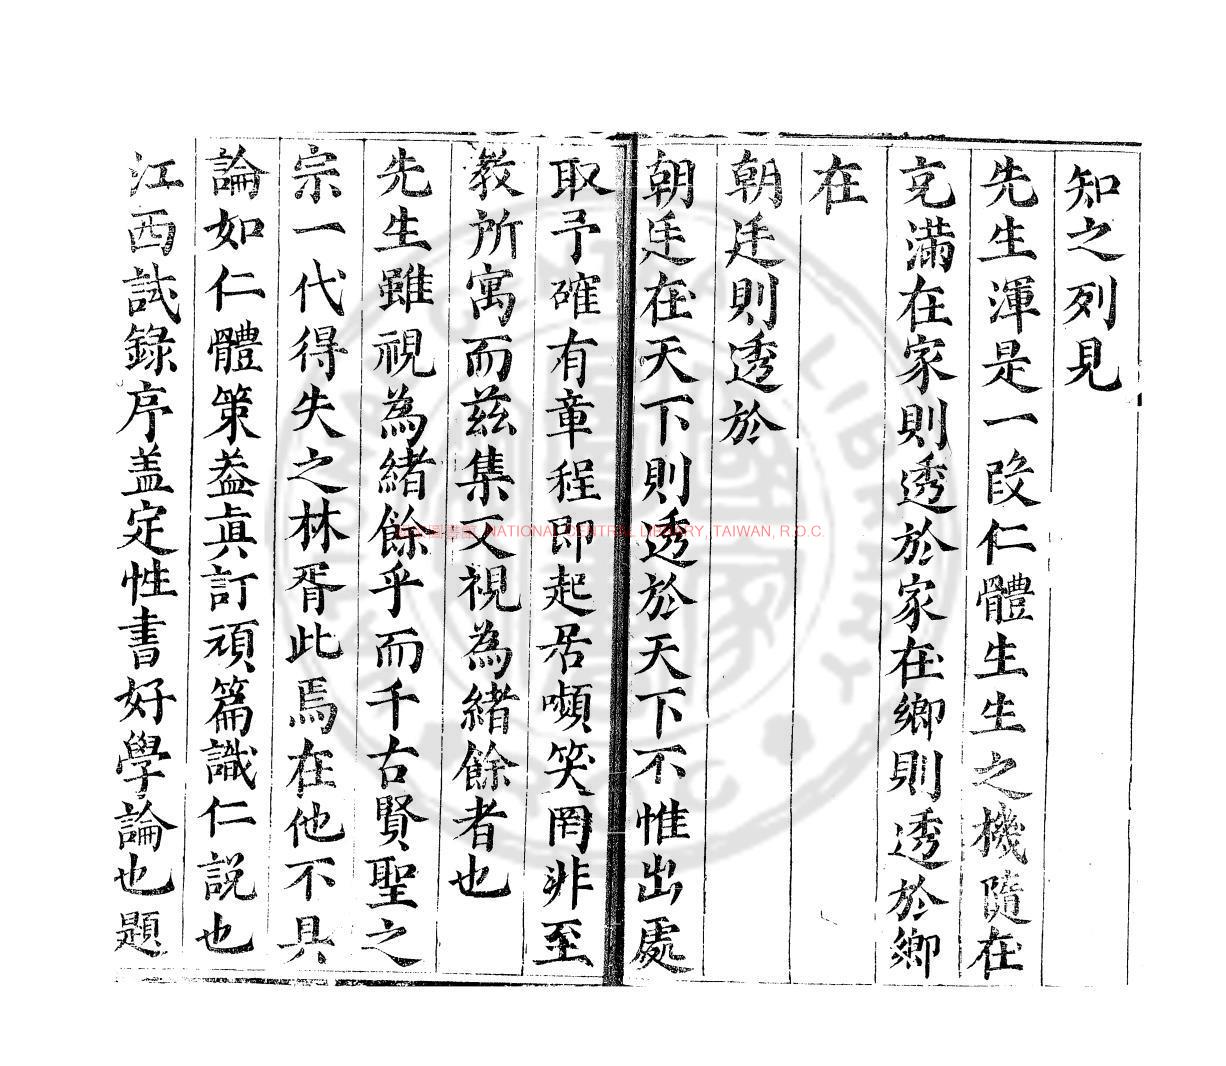 知之列見
先生渾是一段仁體生生之機隨在
充滿在家則透於家在鄉則透於鄉
在
朝廷則透於
朝廷在天下則透於天下不惟出處
取予確有章程即起居嚬笑罔非至
教所寓而兹集又視為緒餘者也
先生雖視為緒餘乎而千古賢聖之
宗一代得失之林胥此焉在他不具
論如仁體策葢眞訂頑篇識仁説也
江西試錄序盖定性書好學論也題
NATIONAL CENTRAL LIBRARY, TAIWAN, R.O.C.